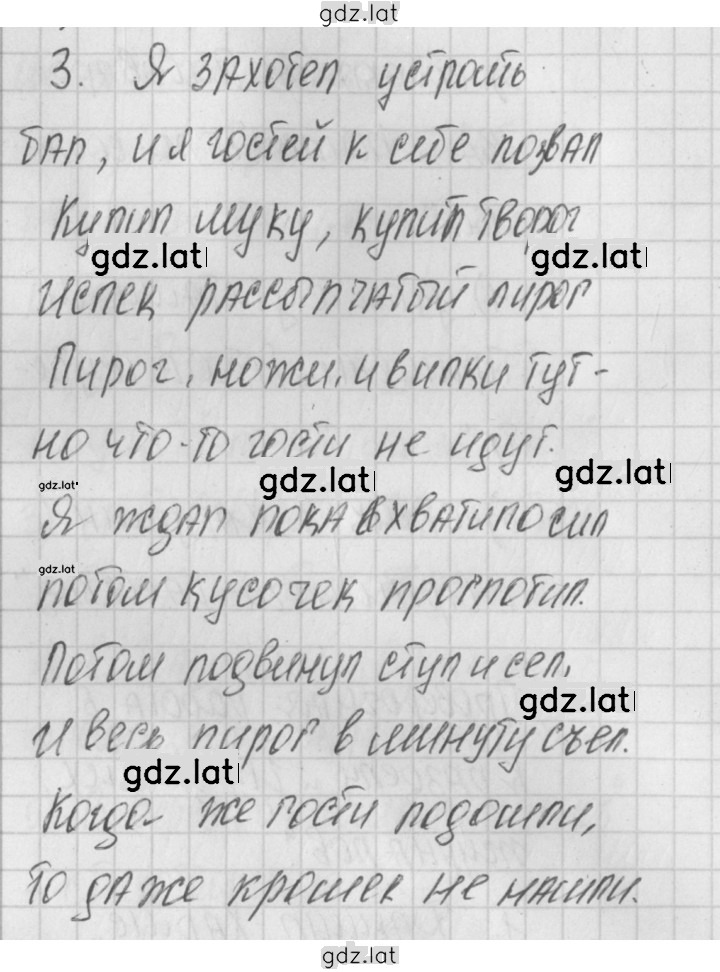 gdz.lat
3. Я захотел устроить
бал, и я гостей к себе позвал
Купил муку, купил творог
gdz.lat gdz.lat
Испек рассыпчатый пирог
Пирог, ножи, и вилки тут -
но что-то гости не идут.
gdz.lat gdz.lat gdz.lat
Я ждал пока хватило сил
gdz.lat
потом кусочек проглотил.
Потом подвинул стул и сел,
gdz.lat
и весь пирог в минуту съел.
gdz.lat
Когда же гости подошли,
то даже крошек не нашли.
gdz.lat